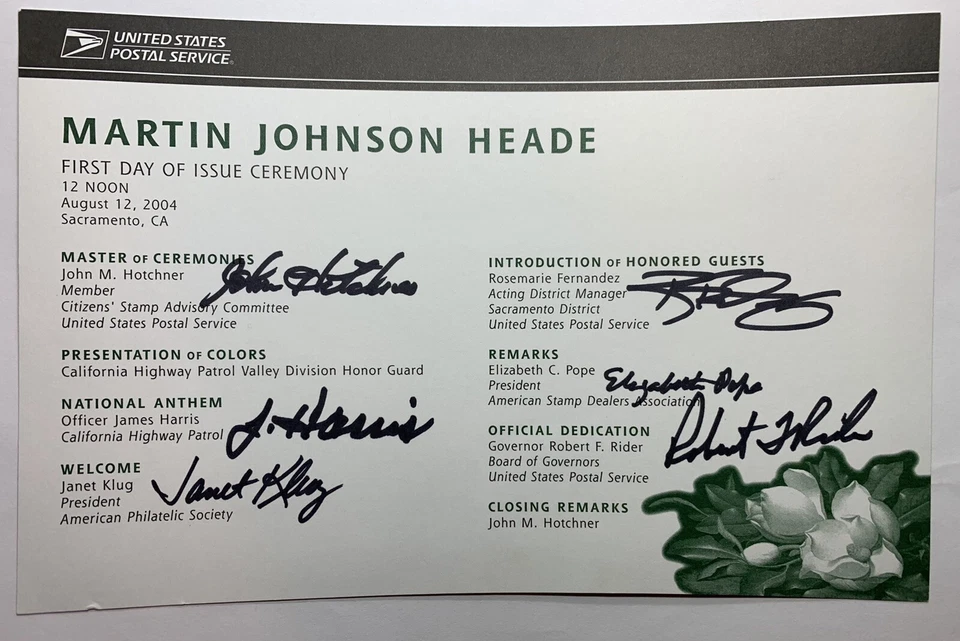 UNITED STATES
POSTAL SERVICE
MARTIN JOHNSON HEADE
FIRST DAY OF ISSUE CEREMONY
12 NOON
August 12, 2004
Sacramento, CA
MASTER OF CEREMONIES
John M. Hotchner
John Hotchner
Member
Citizens' Stamp Advisory Committee
United States Postal Service
PRESENTATION OF COLORS
California Highway Patrol Valley Division Honor Guard
NATIONAL ANTHEM
Officer James Harris
California Highway Patrol
J. Harris
WELCOME
Janet Klug
Janet Klug
President
American Philatelic Society
INTRODUCTION OF HONORED GUESTS
Rosemarie Fernandez
Acting District Manager
Sacramento District
United States Postal Service
REMARKS
Elizabeth C. Pope
Elizabeth Pope
President
American Stamp Dealers Association
OFFICIAL DEDICATION
Governor Robert F. Rider
Robert F Rider
Board of Governors
United States Postal Service
CLOSING REMARKS
John M. Hotchner